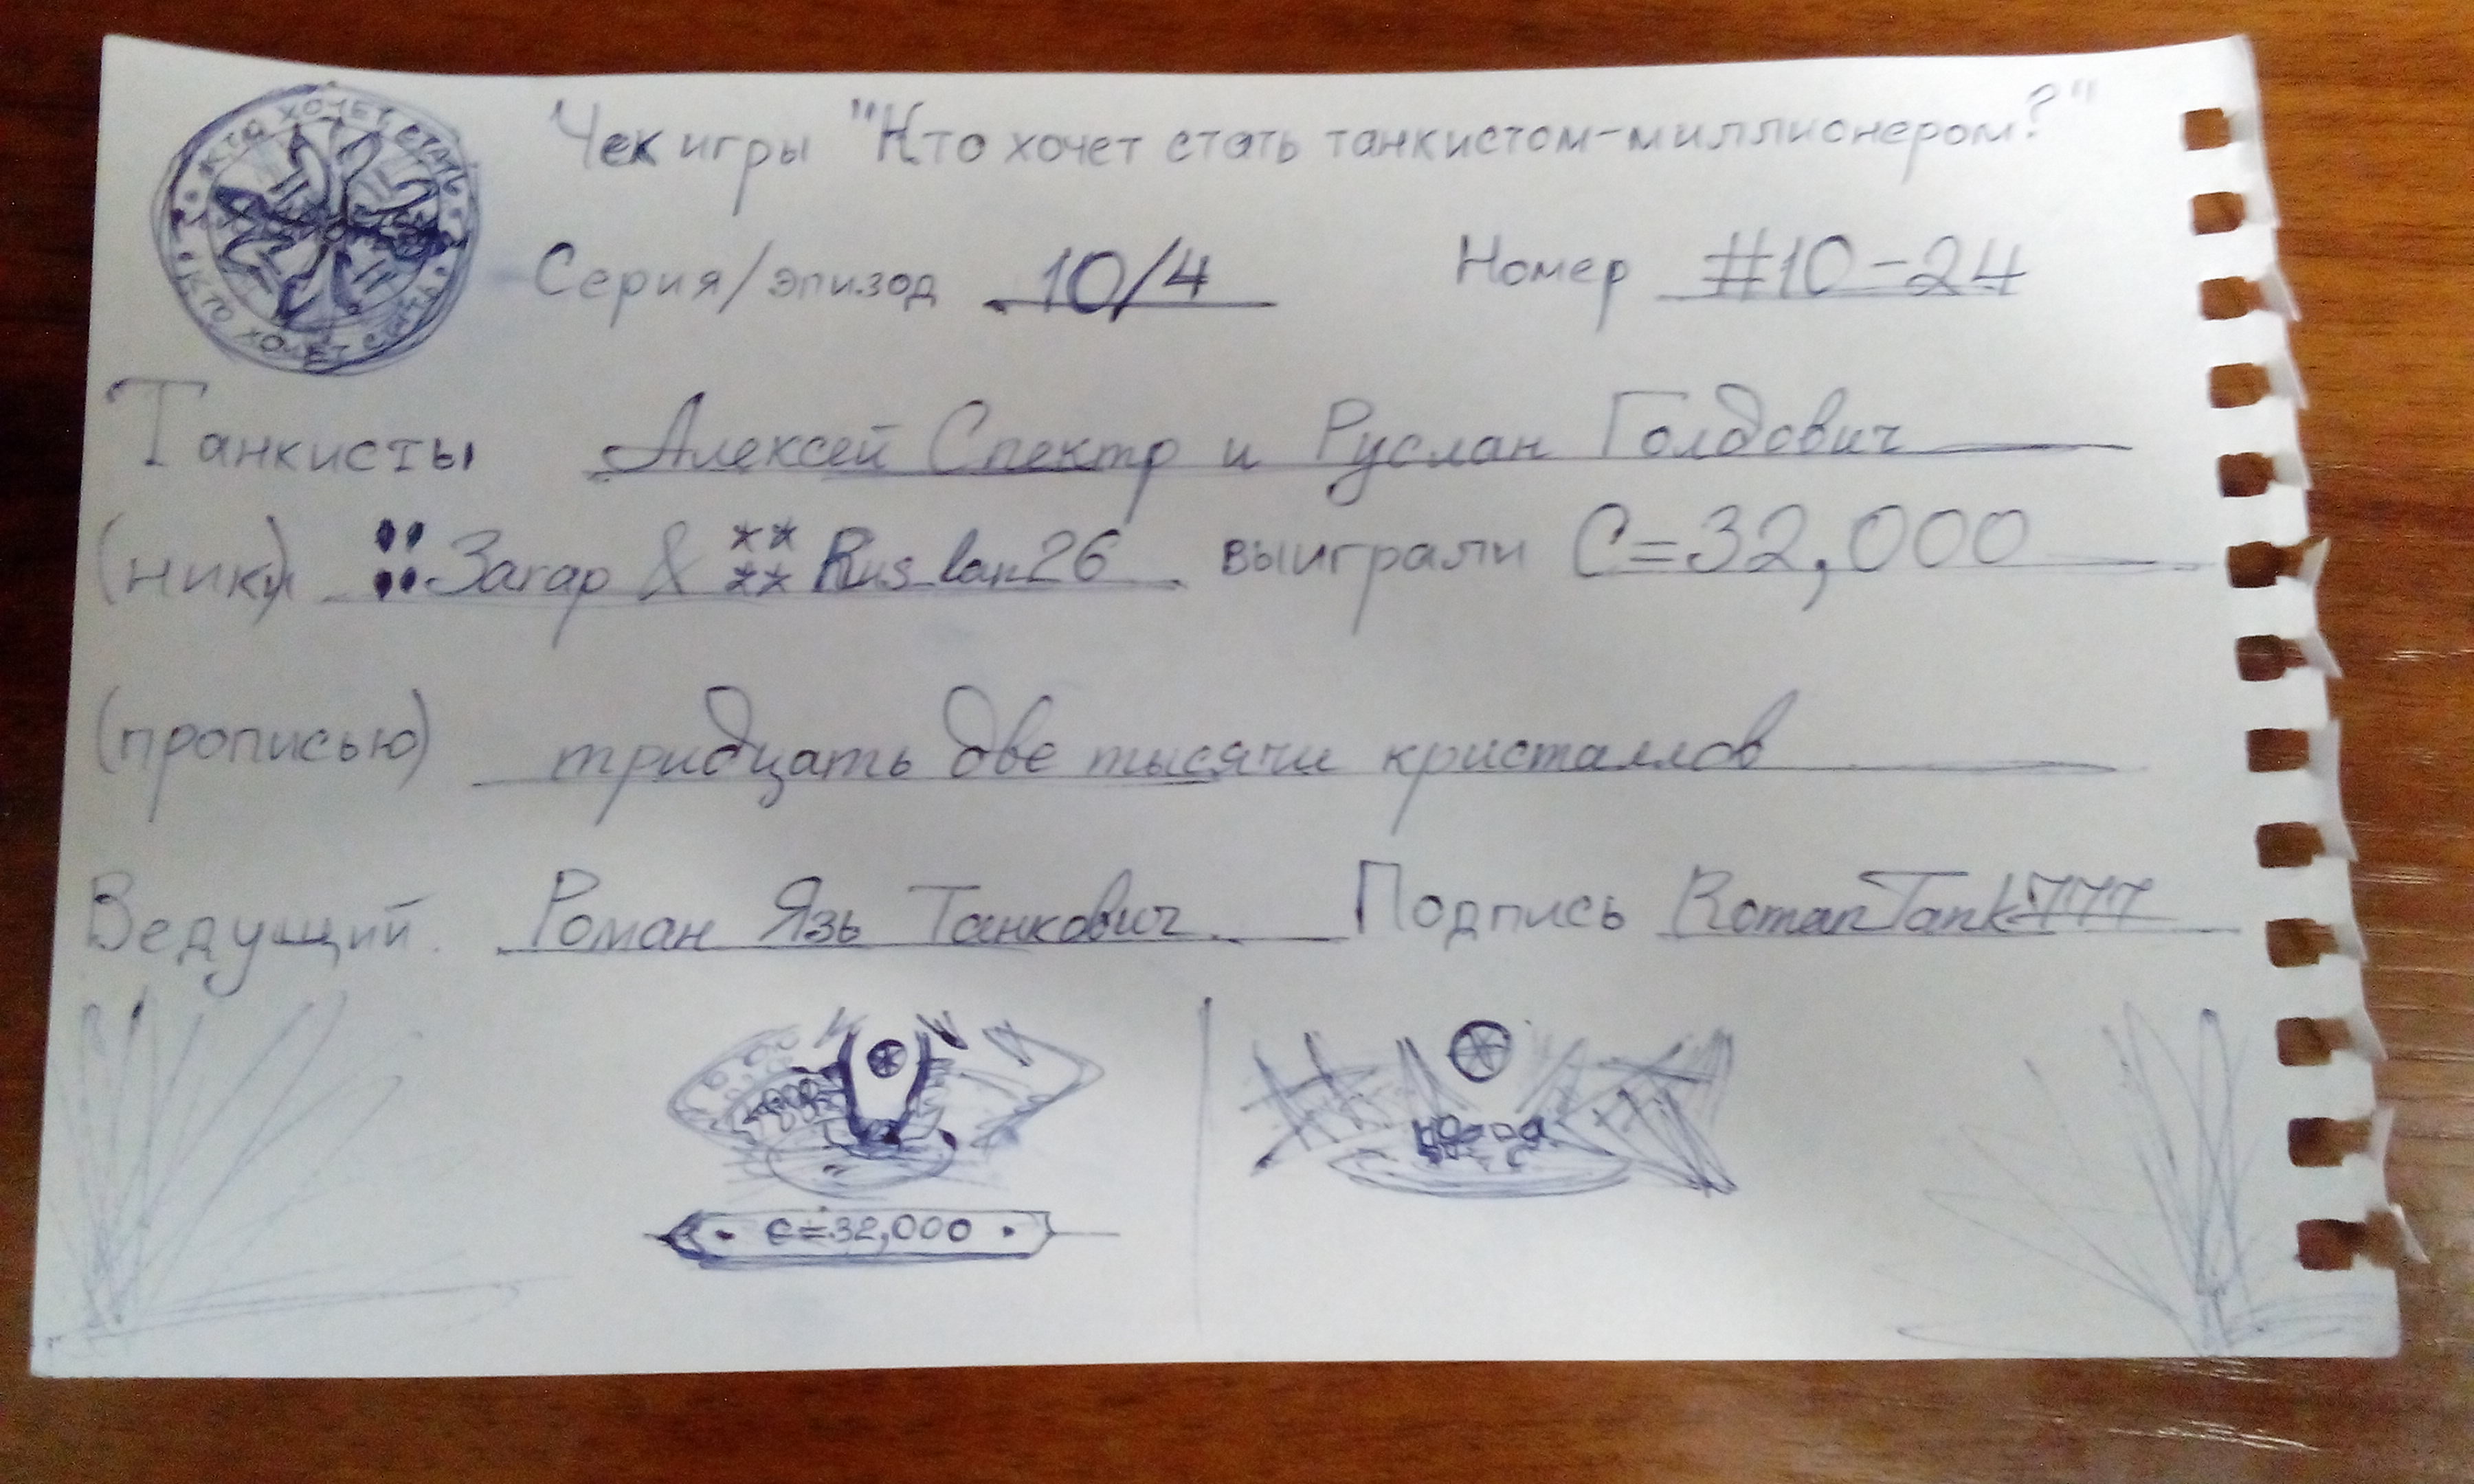 КТО ХОЧЕТ СТАТЬ
КТО ХОЧЕТ СТАТЬ
Чек игры "Кто хочет стать танкистом-миллионером?"
Серия/эпизод 10/4 Номер #10-24
Танкисты Алексей Спектр и Руслан Голдович
(ник) Загар & **** Ruslan26 выиграли C=32,000
(прописью) тридцать две тысячи кристаллов
Ведущий Роман Язь Танкович Подпись RomanTank777
C=32,000